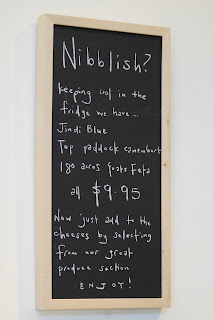 Nibblish?
keeping cool in the
fridge we have...
Jindi Blue
Top paddock camembert
180 acres goats Feta
all $9.95
Now just add to the
cheeses by selecting
from our great
produce section
ENJOY!